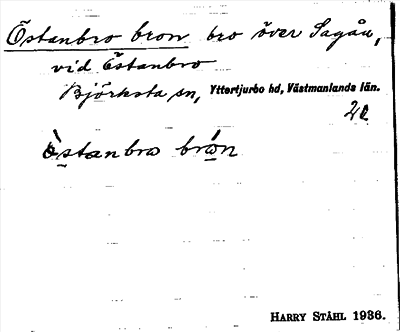 Östanbro bron bro över Sagån,
vid Östanbro
Björksta sn, Yttertjurbo hd, Västmanlands län.
östanbro
HARRY STÅHL 1936.